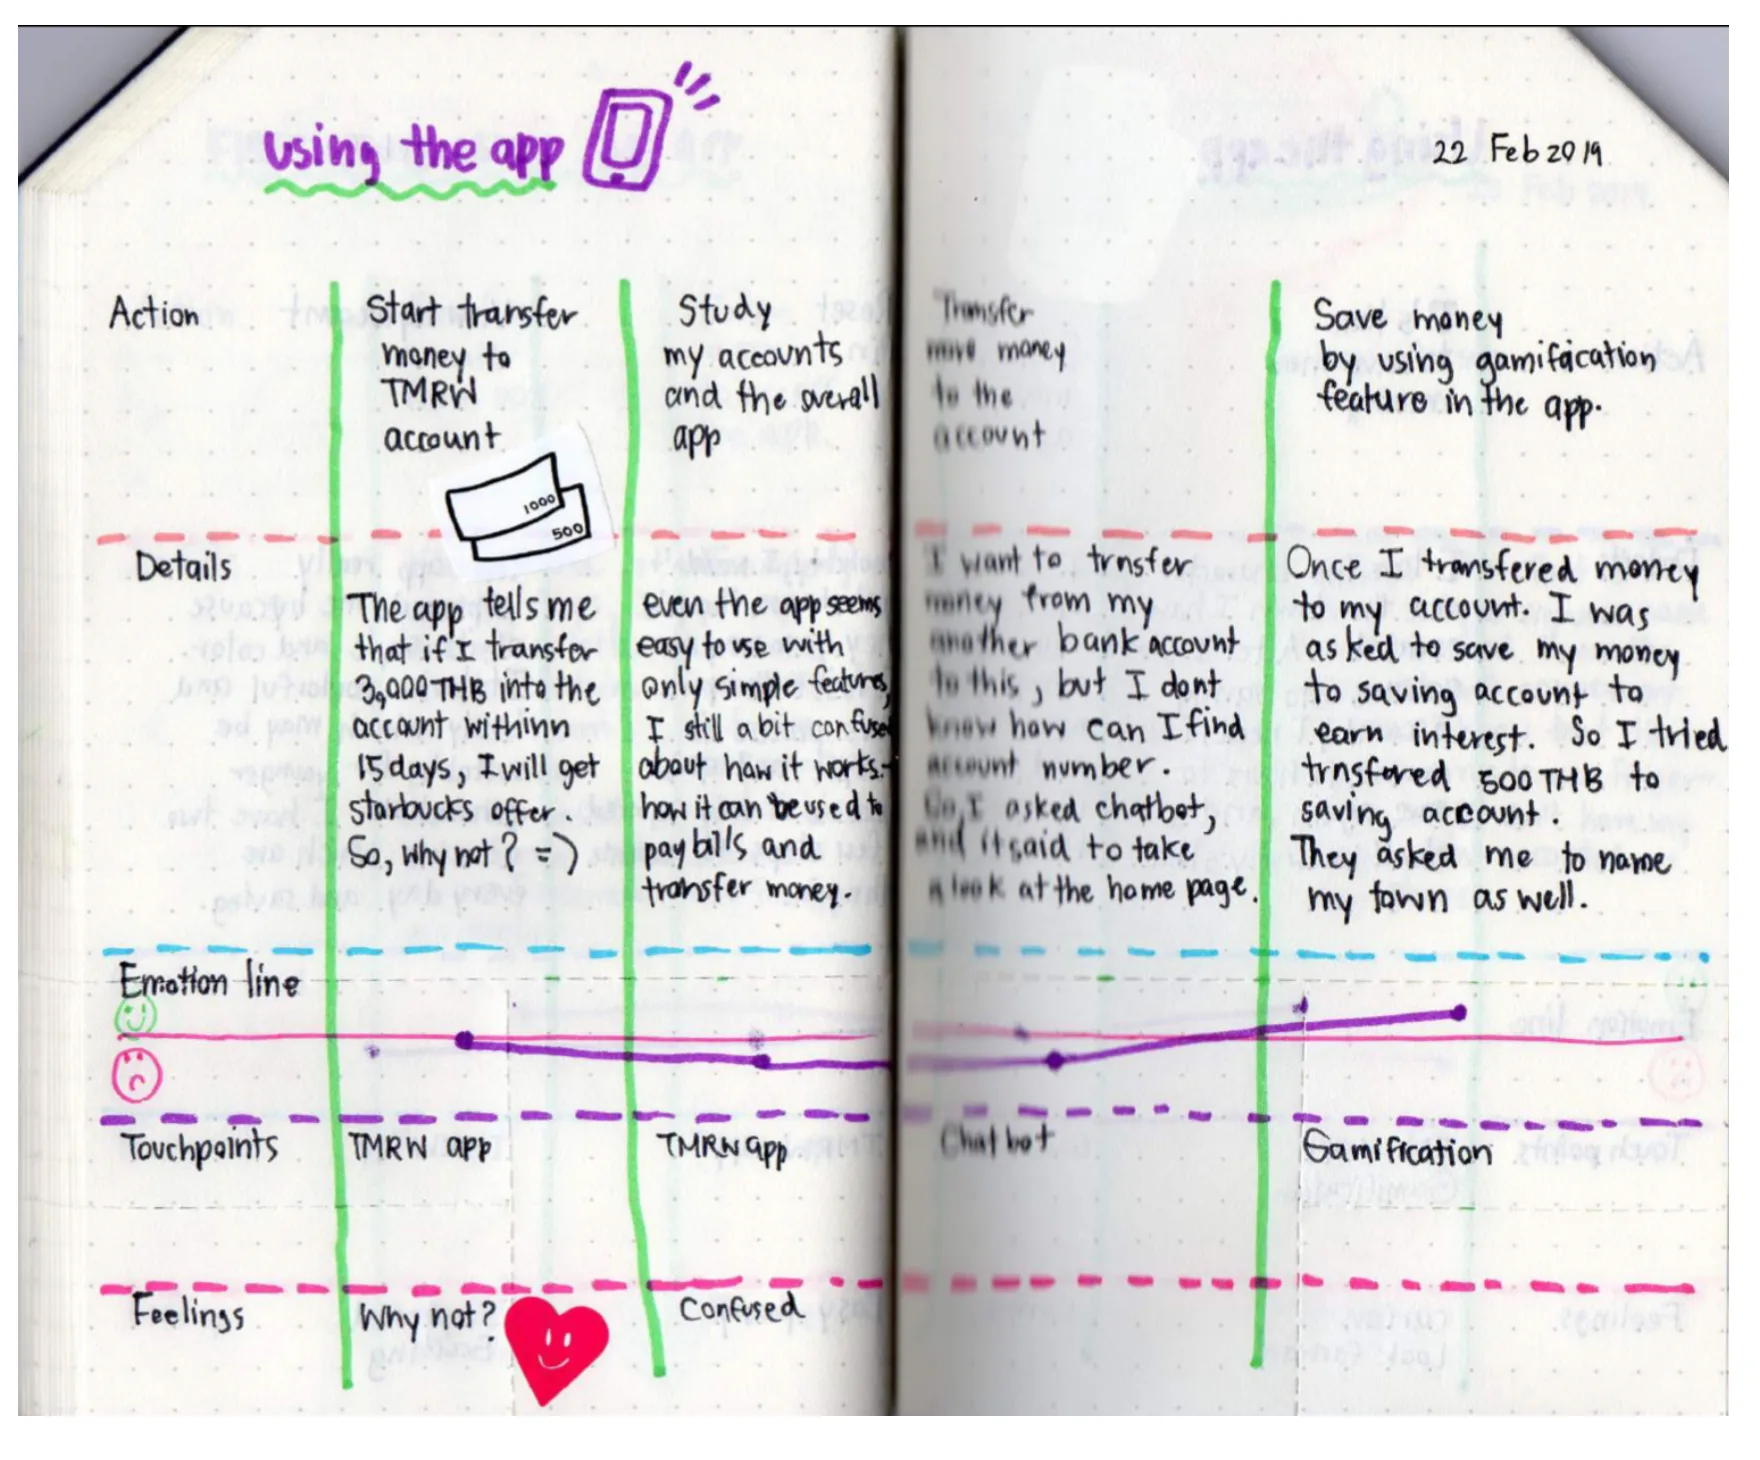 using the app
22 Feb 2019
Action
Start transfer
money to
TMRW
account
1000
500
Study
my accounts
and the overall
app
Transfer
more money
to the
account
Save money
by using gamification
feature in the app.
Details
The app tells me
that if I transfer
3,000 THB into the
account withinn
15 days, I will get
starbucks offer.
So, why not? =)
even the app seems
easy to use with
only simple features,
I still a bit confused
about how it works.
how it can be used to
pay bills and
transfer money.
I want to trnsfer
money from my
another bank account
to this, but I dont
know how can I find
account number.
So, I asked chatbot,
and it said to take
a look at the home page.
Once I transfered money
to my account. I was
asked to save my money
to saving account to
earn interest. So I tried
trnsfered 500 THB to
saving account.
They asked me to name
my town as well.
Emotion line
Touchpoints
TMRW app
TMRW app
Chat bot
Gamification
Feelings
Why not?
Confused